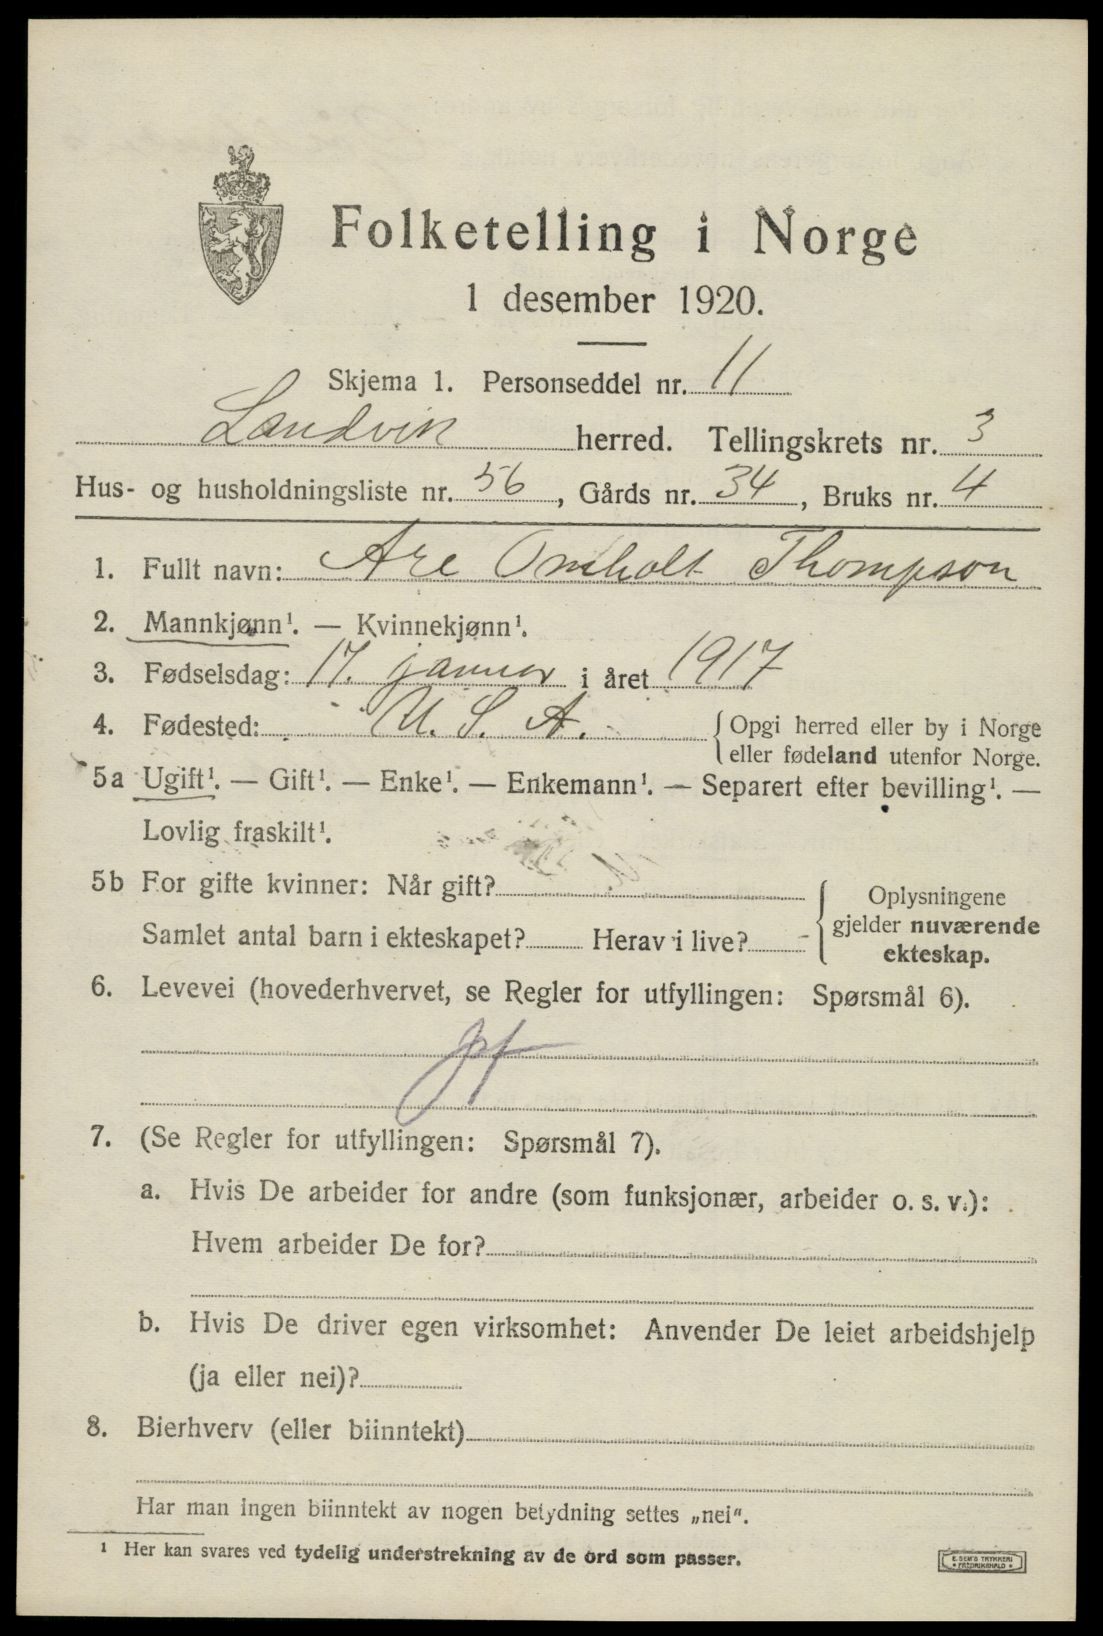 Folketelling i Norge
1 desember 1920.
Skjema 1. Personseddel nr. 11
Landvik herred. Tellingskrets nr. 3
Hus- og husholdningsliste nr. 56, Gårds nr. 34, Bruks nr. 4
1. Fullt navn: Are Omholt Thompson
2. Mannkjønn¹. — Kvinnekjønn¹.
3. Fødselsdag: 17. januar i året 1917
4. Fødested: U. S. A. { Opgi herred eller by i Norge
eller fødeland utenfor Norge.
5a Ugift¹. — Gift¹. — Enke¹. — Enkemann¹. — Separert efter bevilling¹. —
Lovlig fraskilt¹.
5b For gifte kvinner: Når gift? { Oplysningene
Samlet antal barn i ekteskapet? Herav i live? gjelder nuværende
ekteskap.
6. Levevei (hovederhvervet, se Regler for utfyllingen: Spørsmål 6).
7. (Se Regler for utfyllingen: Spørsmål 7).
a. Hvis De arbeider for andre (som funksjonær, arbeider o. s. v.):
Hvem arbeider De for?
b. Hvis De driver egen virksomhet: Anvender De leiet arbeidshjelp
(ja eller nei)?
8. Bierhverv (eller biinntekt)
Har man ingen biinntekt av nogen betydning settes „nei".
¹ Her kan svares ved tydelig understrekning av de ord som passer.
E. SEM'S TRYKKERI
FREDRIKSHALD